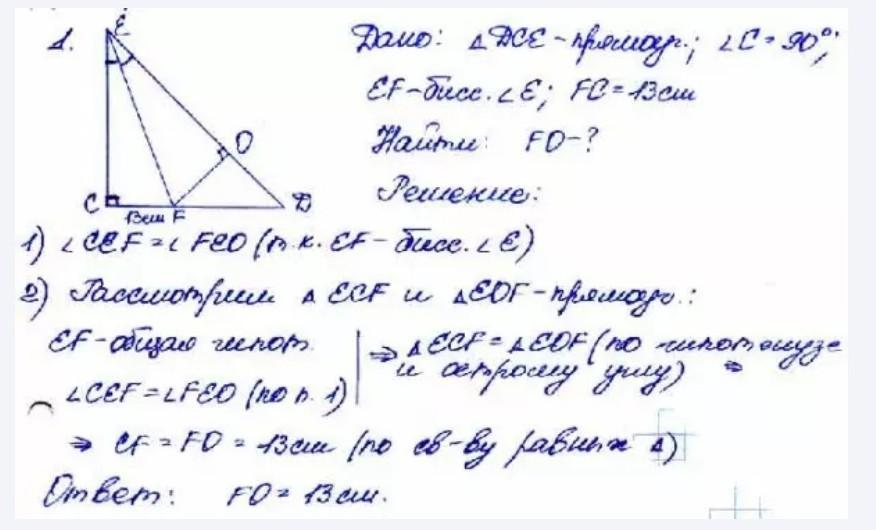 1.
E
O
C
D
13см F
Дано: △DCE - прямоуг.; ∠C = 90°;
EF - бисс. ∠E; FC = 13 см
Найти: FO - ?
Решение:
1) ∠CEF = ∠FEO (т.к. EF - бисс. ∠E)
2) Рассмотрим △ECF и △EOF - прямоуг.:
EF - общая гипот.
∠CEF = ∠FEO (по п. 1)
⇒ △ECF = △EOF (по гипотенузе
и острому углу) ⇒
⇒ CF = FO = 13 см (по св-ву равных △)
Ответ: FO = 13 см.